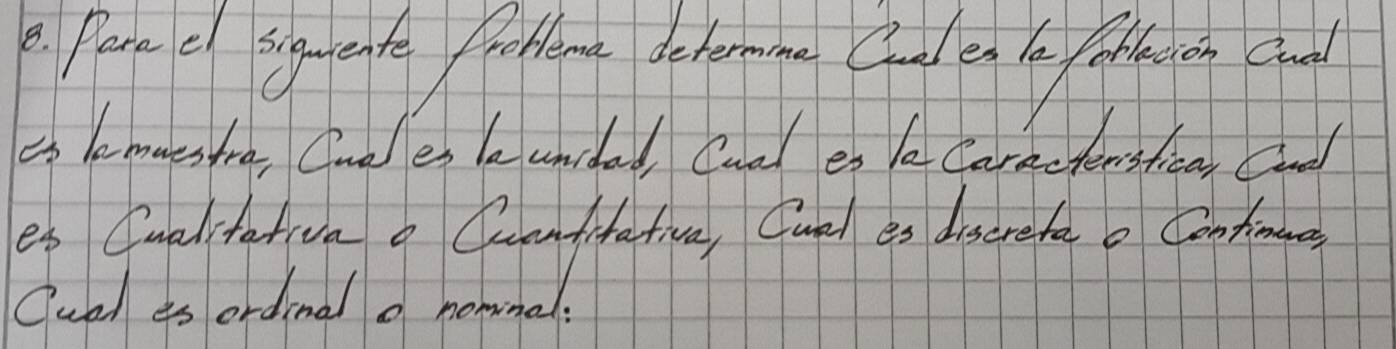 8. Para el siguiente problema determina Cual es la población Cual
es la muestra, Cual es la unidad, Cual es la Característica, Cual
es Cualitativa o Cuantitativa, Cual es discreta o Continua,
Cual es ordinal o nominal: